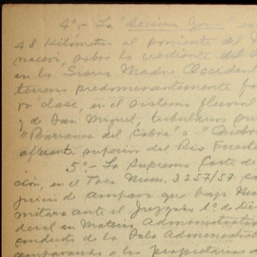 4°.- La Decima Zona
48 Kilómetros al poniente del
nacori, sobre la vertiente del
en la Sierra Madre Occidental
terreno predominantemente
ra clase, en el sistema fluvial
y de San Miguel, tributarios
"Barranca del Cobre" o "
afluente superior del Rio Fuerte
5°.- La Suprema Corte de
ción, en el Toca Núm. 3257/57
juicio de amparo que bajo
mitara ante el Juzgado 1° de Di
deral en Materia Administrativa
conducto de la Sala Administra
amparando a los propietarios